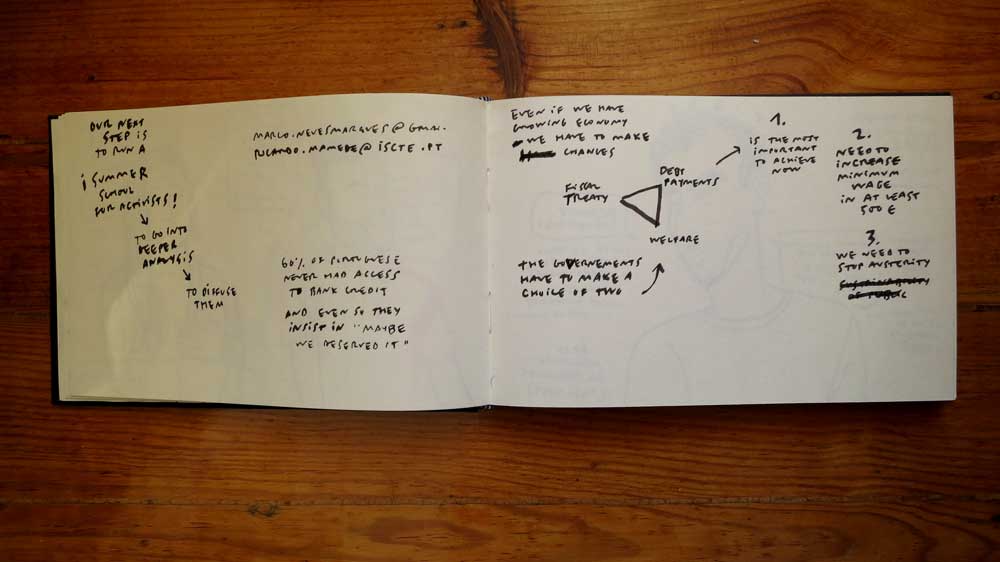 OUR NEXT
STEP IS
TO RUN A
¡SUMMER
SCHOOL
FOR ACTIVISTS!
TO GO INTO
DEEPER
ANALYSIS
TO DISCUSE
THEM
MARCO.NEVESMARQUES@GMAI.
RICARDO.MAMEDE@ISCTE.PT
60% OF PORTUGUESE
NEVER HAD ACCESS
TO BANK CREDIT
AND EVEN SO THEY
INSIST IN "MAYBE
WE DESERVED IT"
EVEN IF WE HAVE
GROWING ECONOMY
WE HAVE TO MAKE
CHANGES
FISCAL
TREATY
DEBT
PAYMENTS
WELFARE
THE GOVERNEMENTS
HAVE TO MAKE A
CHOICE OF TWO
1.
IS THE MOST
IMPORTANT
TO ACHIEVE
NOW
2.
NEED TO
INCREASE
MINIMUM
WAGE
IN AT LEAST
500 E
3.
WE NEED TO
STOP AUSTERITY
SUSTAINABILITY
OF PUBLIC